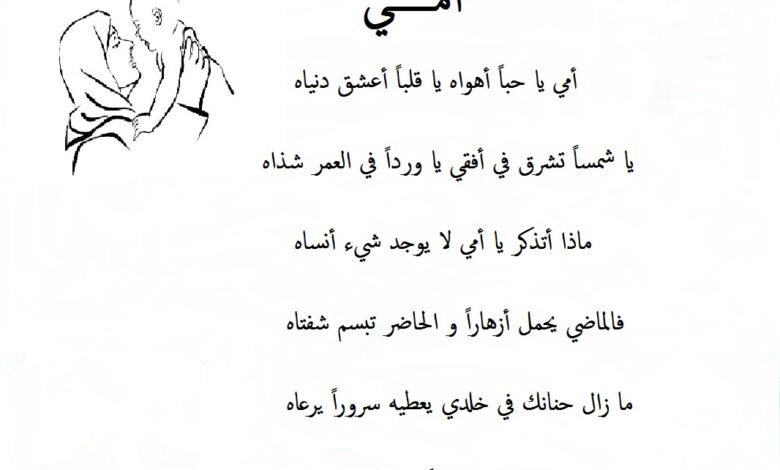 أمي
أمي يا حباً أهواه يا قلباً أعشق دنياه
يا شمساً تشرق في أفقي يا ورداً في العمر شذاه
ماذا أتذكر يا أمي لا يوجد شيء أنساه
فالماضي يحمل أزهاراً و الحاضر تبسم شفتاه
ما زال حنانك في خلدي يعطيه سروراً يرعاه